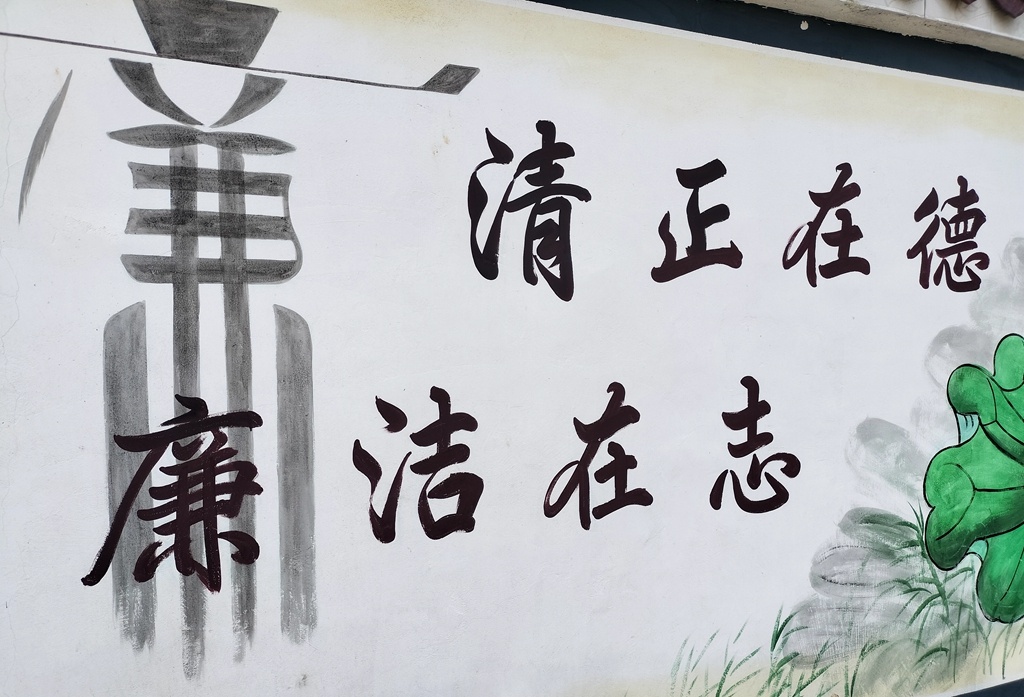 清正在德
廉洁在志